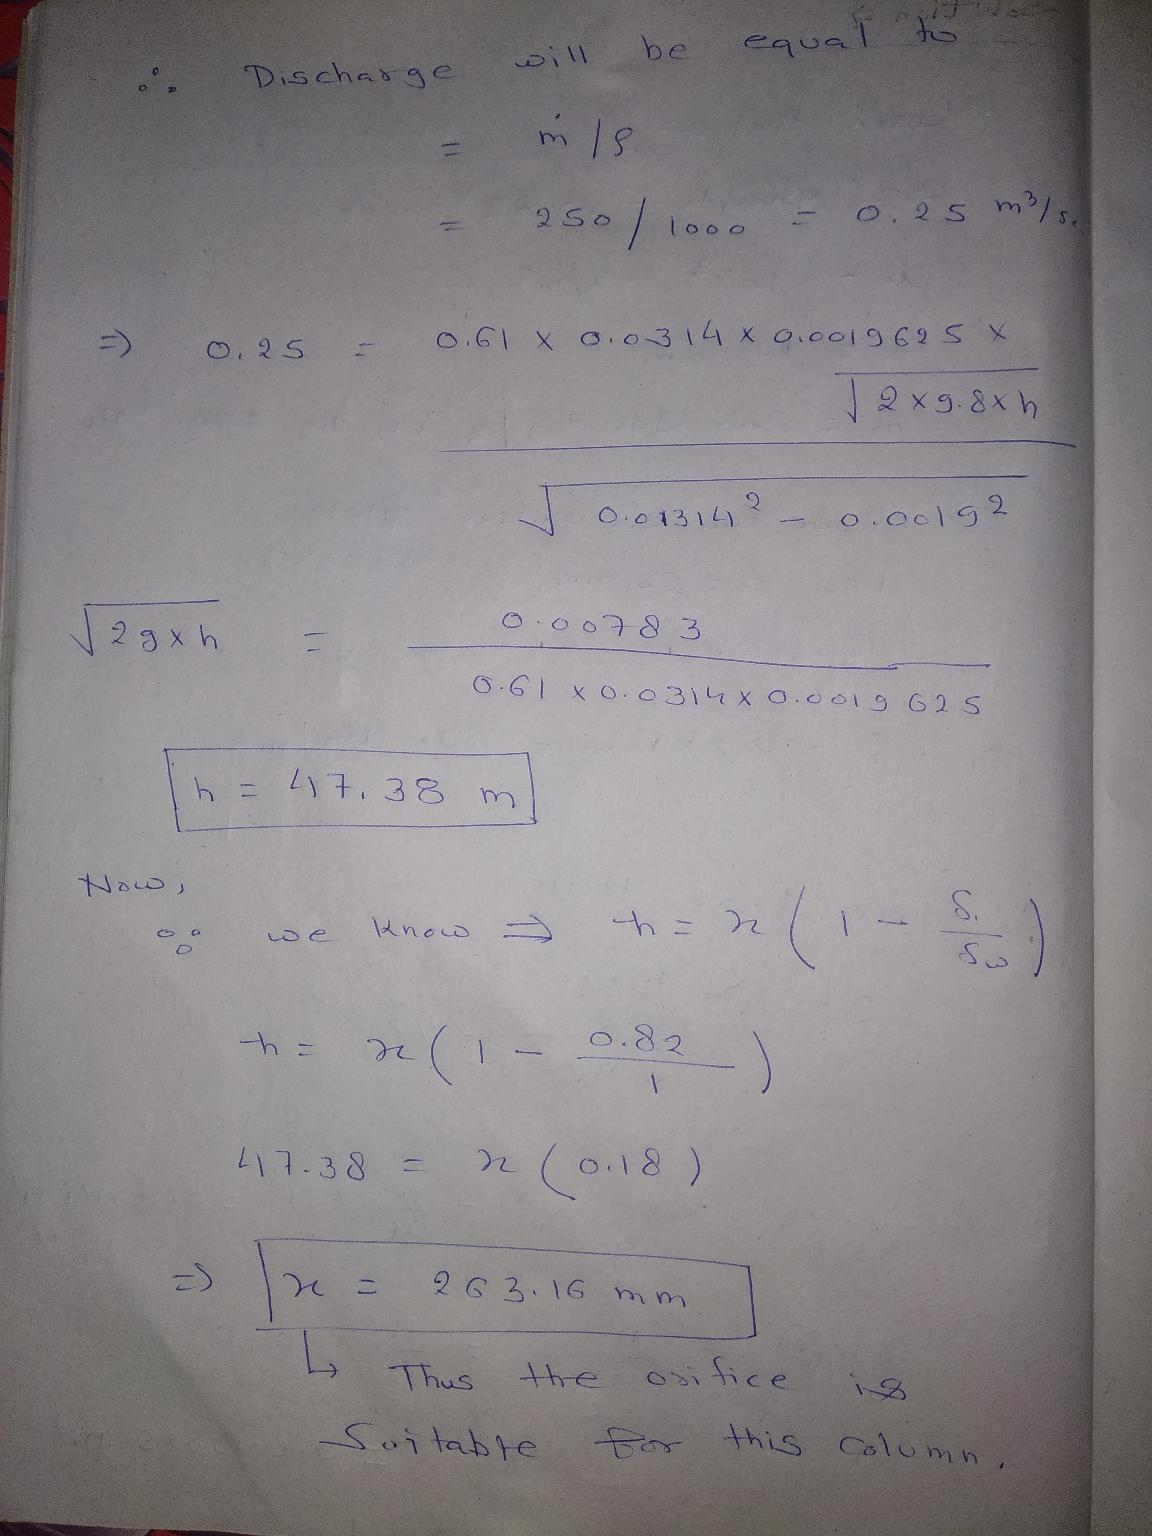 ∴ Discharge will be equal to
= ṁ/ρ
= 250/1000 = 0.25 m³/s
⇒ 0.25 = 0.61 x 0.0314 x 0.0019625 x
√2x9.8xh
√0.01314² - 0.0019²
√2gxh = 0.00783
0.61 x 0.0314 x 0.0019625
h = 47.38 m
Now,
∵ we know ⇒ h = x(1 - S/Sω)
h = x(1 - 0.82/1)
47.38 = x(0.18)
⇒ x = 263.16 mm
↳ Thus the orifice is
Suitable for this column.